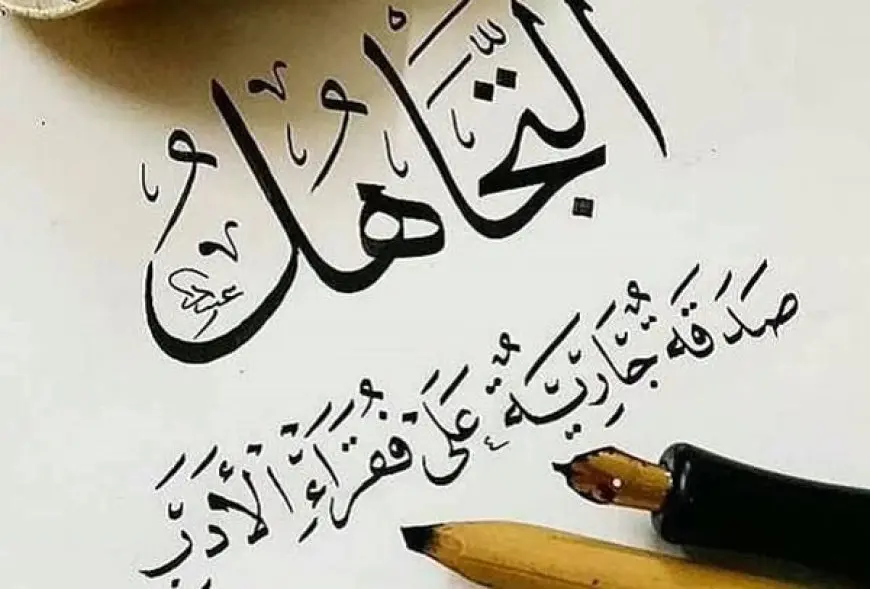 التَّجَاهُلُ
صَدَقَةٌ جَّارِيَّةٌ عَلَى فُقَرَاءِ الْأَدَبِ